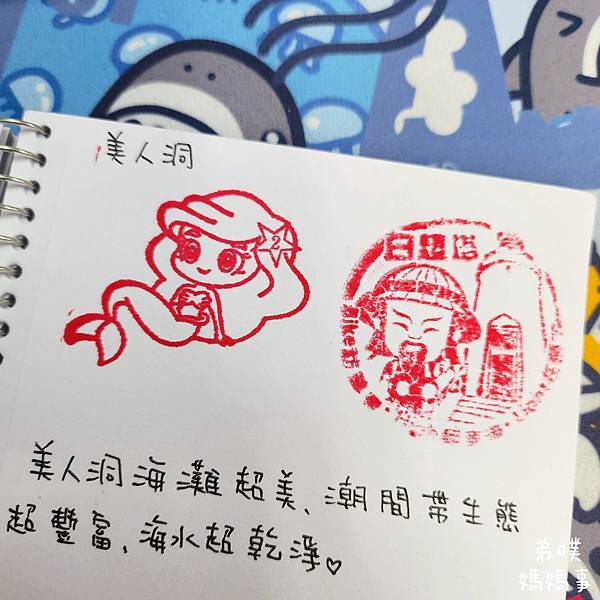 美人洞
2
白燈塔
Bike
美人洞海灘超美、潮間帶生態
超豐富、海水超乾淨♡
弟噗
媽媽事